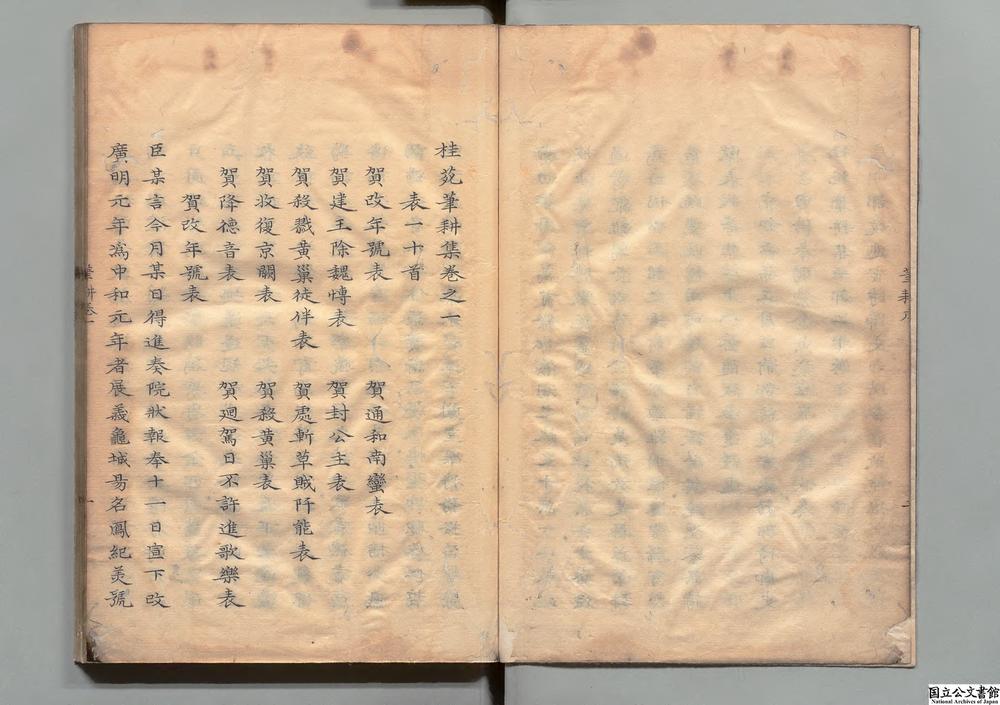 桂苑筆耕集卷之一
表一十首
賀改年號表 賀通和南蠻表
賀建王除魏愽表 賀封公主表
賀殺戮黃巢徒伴表 賀處斬草賊阡能表
賀收復京闕表 賀殺黃巢表
賀降德音表 賀廻駕日不許進歌樂表
賀改年號表
臣某言今月某日得進奏院狀報奉十一日宣下改
廣明元年爲中和元年者展義龜城易名鳳紀美號
国立公文書館
National Archives of Japan